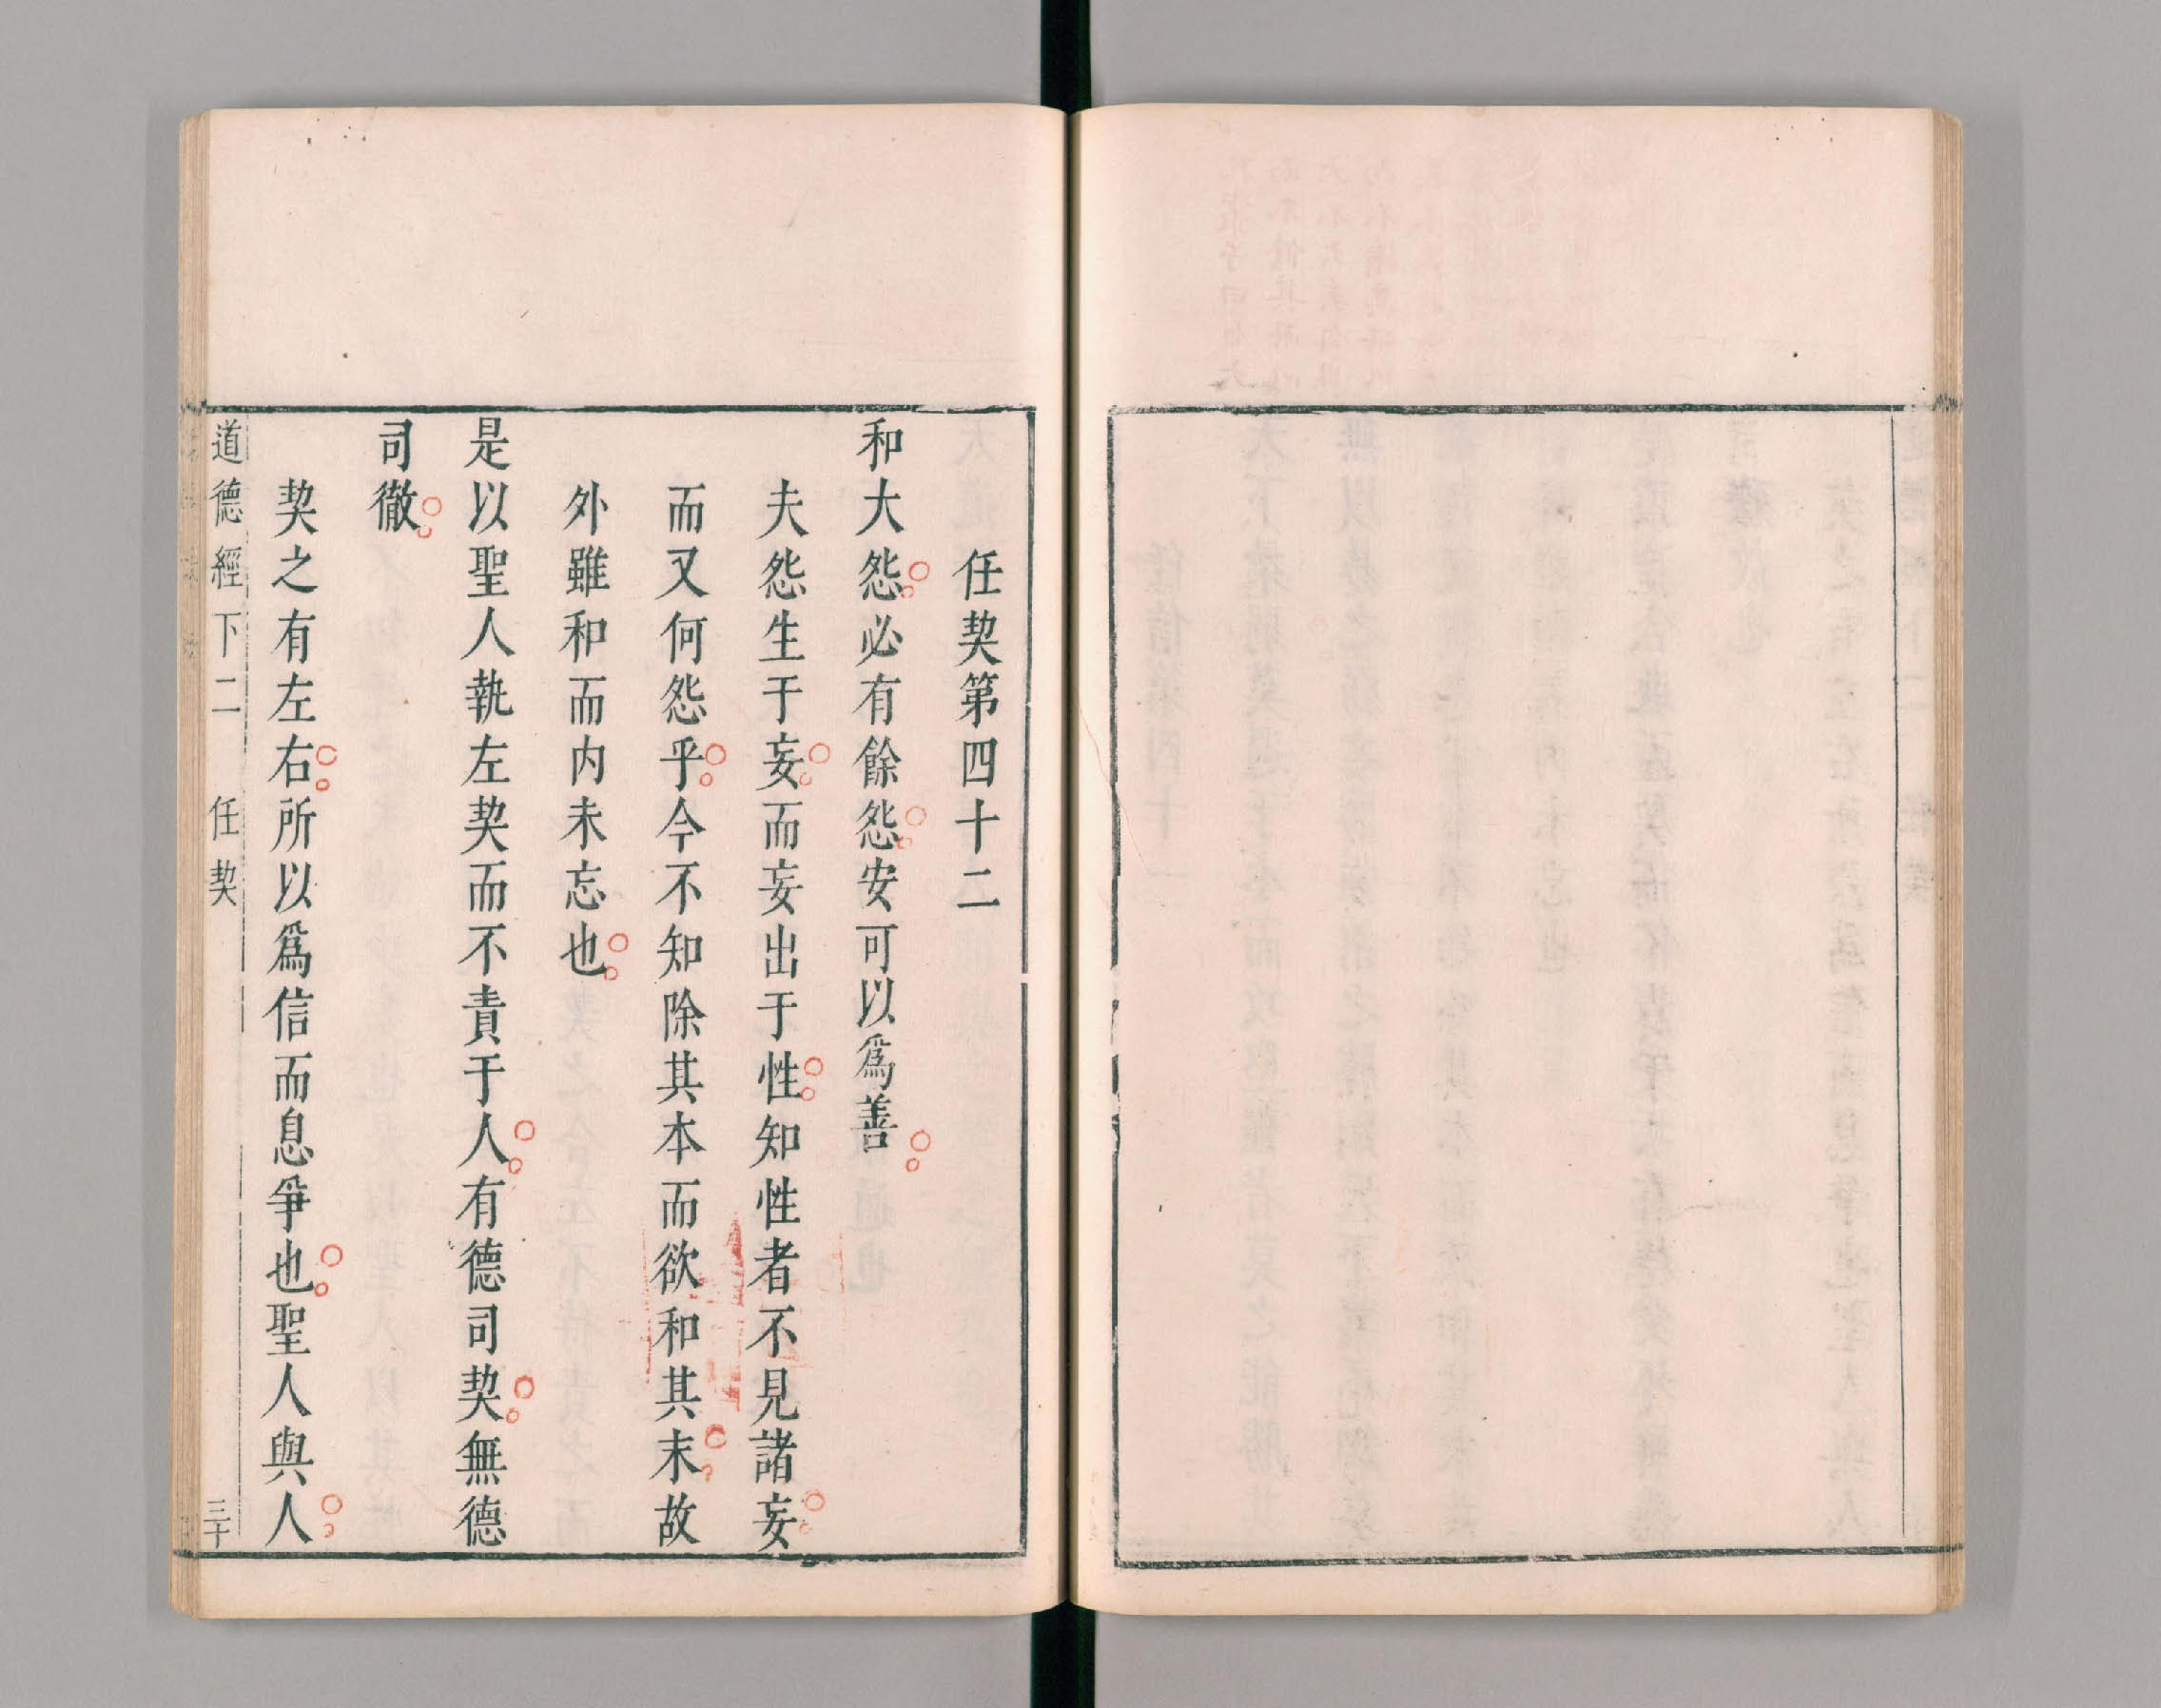 任契第四十二
和大怨必有餘怨安可以爲善
夫怨生于妄而妄出于性知性者不見諸妄
而又何怨乎今不知除其本而欲和其末故
外雖和而内未忘也
是以聖人執左契而不責于人有德司契無德
司徹
契之有左右所以爲信而息爭也聖人與人
道德經下二 任契 三十